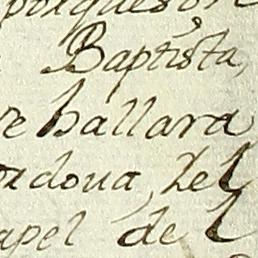 porques
Baptista,
hallara
rdoua, del
apel de l